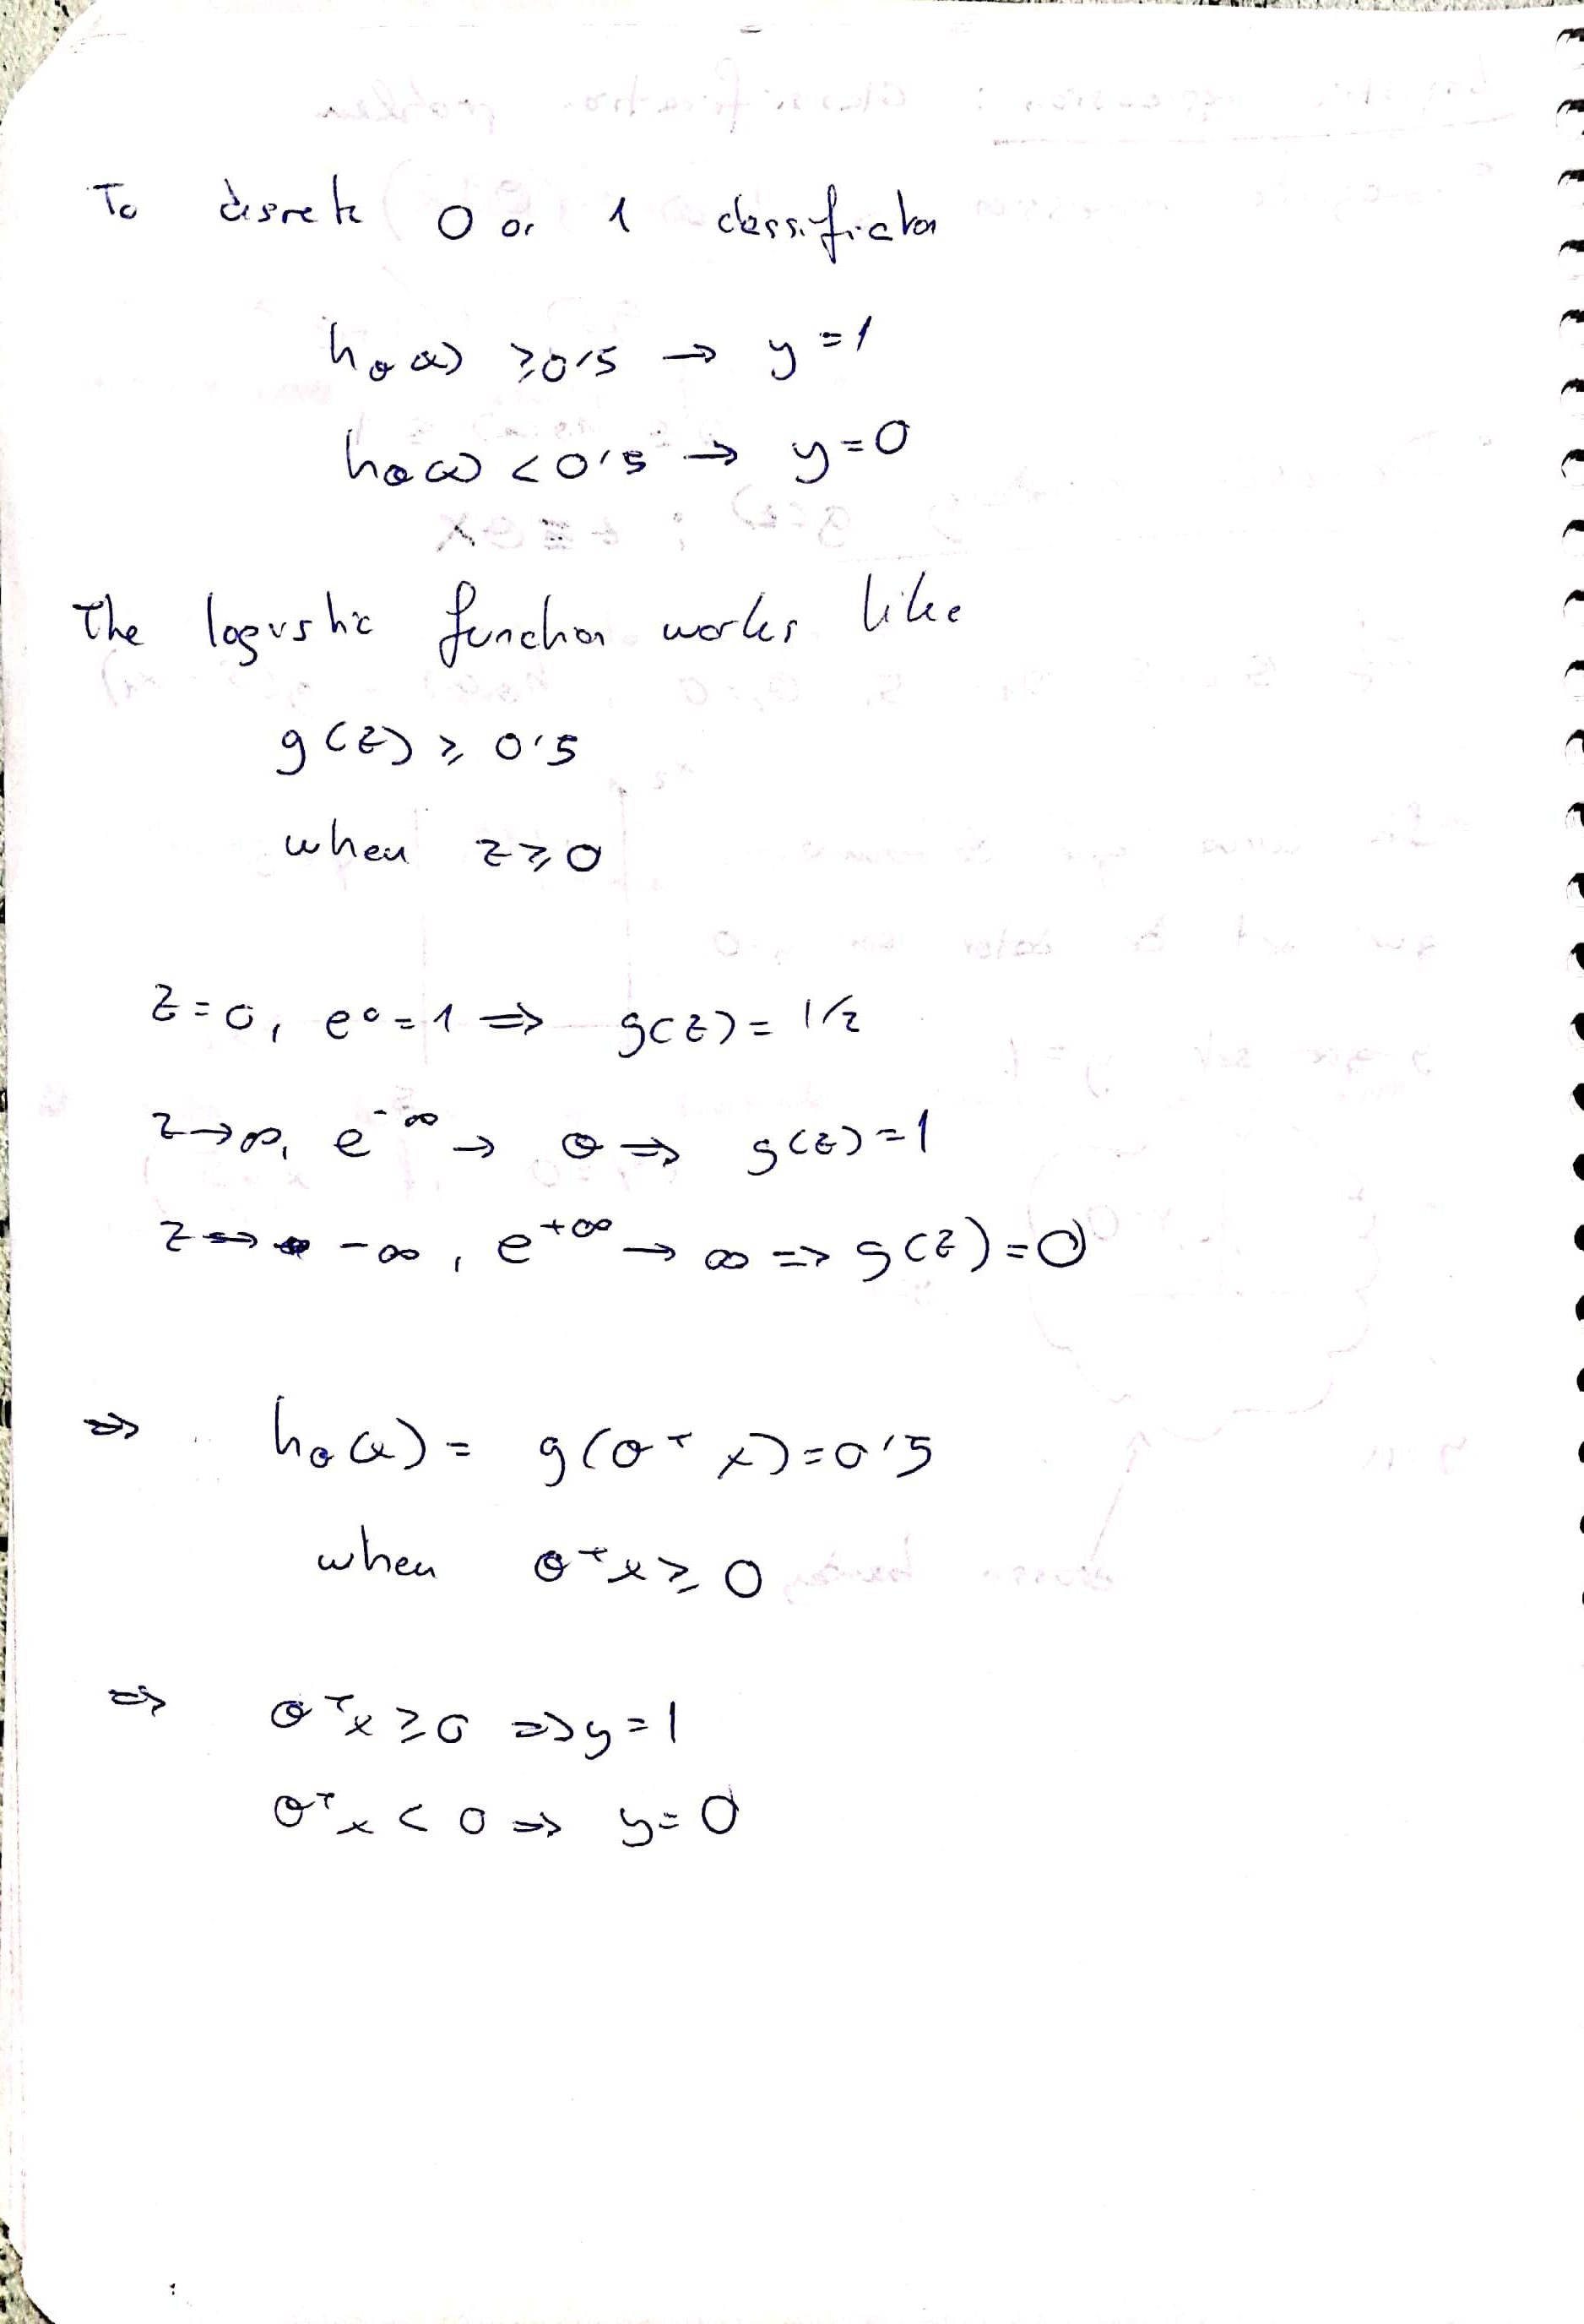 To discrete 0 or 1 classification
hθ(x) ≥ 0'5 → y = 1
hθ(x) < 0'5 → y = 0
The logistic function works like
g(z) ≥ 0'5
when z ≥ 0
z = 0, e⁰ = 1 ⇒ g(z) = 1/2
z → ∞, e^-∞ → 0 ⇒ g(z) = 1
z → -∞, e^+∞ → ∞ ⇒ g(z) = 0
⇒ hθ(x) = g(θᵀ x) = 0'5
when θᵀx ≥ 0
⇒ θᵀx ≥ 0 ⇒ y = 1
θᵀx < 0 ⇒ y = 0